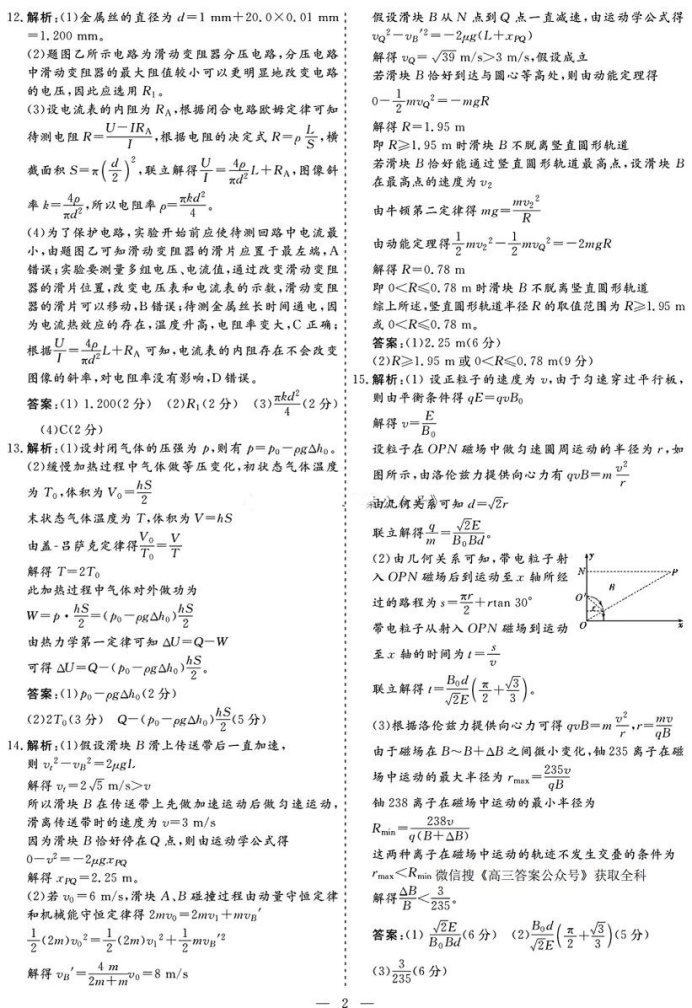 12.解析:(1)金属丝的直径为 d=1 mm+20.0×0.01 mm
=1.200 mm。
(2)题图乙所示电路为滑动变阻器分压电路,分压电路
中滑动变阻器的最大阻值较小可以更明显地改变电路
的电压,因此应选用 R₁。
(3)设电流表的内阻为 R_A,根据闭合电路欧姆定律可知
待测电阻 R=(U-IR_A)/I,根据电阻的决定式 R=ρL/S,横
截面积 S=π(d/2)²,联立解得U/I=4ρ/(πd²)L+R_A,图像斜
率 k=4ρ/(πd²),所以电阻率 ρ=πkd²/4。
(4)为了保护电路,实验开始前应使待测回路中电流最
小,由题图乙可知滑动变阻器的滑片应置于最左端,A
错误;实验要测量多组电压、电流值,通过改变滑动变阻
器的滑片位置,改变电压表和电流表的示数,滑动变阻
器的滑片可以移动,B错误;待测金属丝长时间通电,因
为电流热效应的存在,温度升高,电阻率变大,C 正确;
根据U/I=4ρ/(πd²)L+R_A 可知,电流表的内阻存在不会改变
图像的斜率,对电阻率没有影响,D错误。
答案:(1) 1.200(2分) (2)R₁(2分) (3)πkd²/4(2分)
(4)C(2分)
13.解析:(1)设封闭气体的压强为 p,则有 p=p₀-ρgΔh₀。
(2)缓慢加热过程中气体做等压变化,初状态气体温度
为 T₀,体积为 V₀=hS/2
末状态气体温度为 T,体积为 V=hS
由盖-吕萨克定律得V₀/T₀=V/T
解得 T=2T₀
此加热过程中气体对外做功为
W=p·hS/2=(p₀-ρgΔh₀)hS/2
由热力学第一定律可知 ΔU=Q-W
可得 ΔU=Q-(p₀-ρgΔh₀)hS/2。
答案:(1)p₀-ρgΔh₀(2分)
(2)2T₀(3分) Q-(p₀-ρgΔh₀)hS/2(5分)
14.解析:(1)假设滑块 B 滑上传送带后一直加速,
则 v_t²-v_B²=2μgL
解得 v_t=2√5 m/s>v
所以滑块 B 在传送带上先做加速运动后做匀速运动,
滑离传送带时的速度为 v=3 m/s
因为滑块 B 恰好停在 Q 点,则由运动学公式得
0-v²=-2μgx_PQ
解得 x_PQ=2.25 m。
(2)若 v₀=6 m/s,滑块 A、B 碰撞过程由动量守恒定律
和机械能守恒定律得 2mv₀=2mv₁+mv_B′
1/2(2m)v₀²=1/2(2m)v₁²+1/2mv_B′²
解得 v_B′=4m/(2m+m)v₀=8 m/s
假设滑块 B 从 N 点到 Q 点一直减速,由运动学公式得
v_Q²-v_B′²=-2μg(L+x_PQ)
解得 v_Q=√39 m/s>3 m/s,假设成立
若滑块 B 恰好到达与圆心等高处,则由动能定理得
0-1/2mv_Q²=-mgR
解得 R=1.95 m
即 R≥1.95 m 时滑块 B 不脱离竖直圆形轨道
若滑块 B 恰好能通过竖直圆形轨道最高点,设滑块 B
在最高点的速度为 v₂
由牛顿第二定律得 mg=mv₂²/R
由动能定理得1/2mv₂²-1/2mv_Q²=-2mgR
解得 R=0.78 m
即 0<R≤0.78 m 时滑块 B 不脱离竖直圆形轨道
综上所述,竖直圆形轨道半径 R 的取值范围为 R≥1.95 m
或 0<R≤0.78 m。
答案:(1)2.25 m(6分)
(2)R≥1.95 m 或 0<R≤0.78 m(9分)
15.解析:(1) 设正粒子的速度为 v,由于匀速穿过平行板,
则由平衡条件得 qE=qvB₀
解得 v=E/B₀
设粒子在 OPN 磁场中做匀速圆周运动的半径为 r,如
图所示,由洛伦兹力提供向心力有 qvB=mv²/r
由几何关系可知 d=√2r
联立解得q/m=√2E/(B₀Bd)。
(2)由几何关系可知,带电粒子射
入 OPN 磁场后到运动至 x 轴所经
过的路程为 s=πr/2+rtan 30°
带电粒子从射入 OPN 磁场到运动
至 x 轴的时间为 t=s/v
联立解得 t=B₀d/(√2E)(π/2+√3/3)。
y
N
P
B
O′
r
O
x
(3)根据洛伦兹力提供向心力可得 qvB=mv²/r,r=mv/(qB)
由于磁场在 B~B+ΔB 之间微小变化,铀 235 离子在磁
场中运动的最大半径为 r_max=235v/(qB)
铀 238 离子在磁场中运动的最小半径为
R_min=238v/(q(B+ΔB))
这两种离子在磁场中运动的轨迹不发生交叠的条件为
r_max<R_min 微信搜《高三答案公众号》获取全科
解得ΔB/B<3/235。
答案:(1) √2E/(B₀Bd)(6分) (2)B₀d/(√2E)(π/2+√3/3)(5分)
(3)3/235(6分)
— 2 —